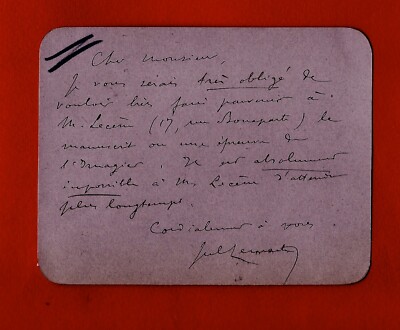 Cher Monsieur,
Je vous serais très obligé de
vouloir bien faire parvenir à
M. Lecène (17, rue Bonaparte) le
manuscrit ou une épreuve de
l'Imagier. Il est absolument
impossible à M. Lecène d'attendre
plus longtemps.
Cordialement à vous.